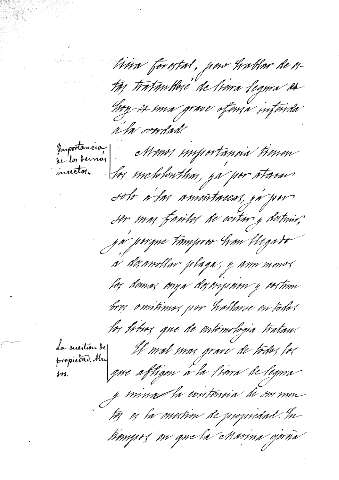 tica forestal, pero hablar de es-
tas tratandose de Sierra Segura es
hoy una grave ofensa inferida
á la verdad.
Importancia
de los demás
insectos.
Menos importancia tienen
los melolonthas, yá por atacar
solo á las amentaceas, yá por
ser mas faciles de evitar y destruir,
yá porque tampoco han llegado
á desarrollar plaga, y aun menos
los demas cuya descripcion y costum-
bres omitimos por hallarse en todos
los libros que de entomologia tratan.
La cuestion de
propiedad. Usos.
El mal mas grave de todos los
que afligen á la Sierra de Segura
y mina la existencia de sus mon-
tes es la cuestion de propiedad. En
tiempos en que la Marina ejercia